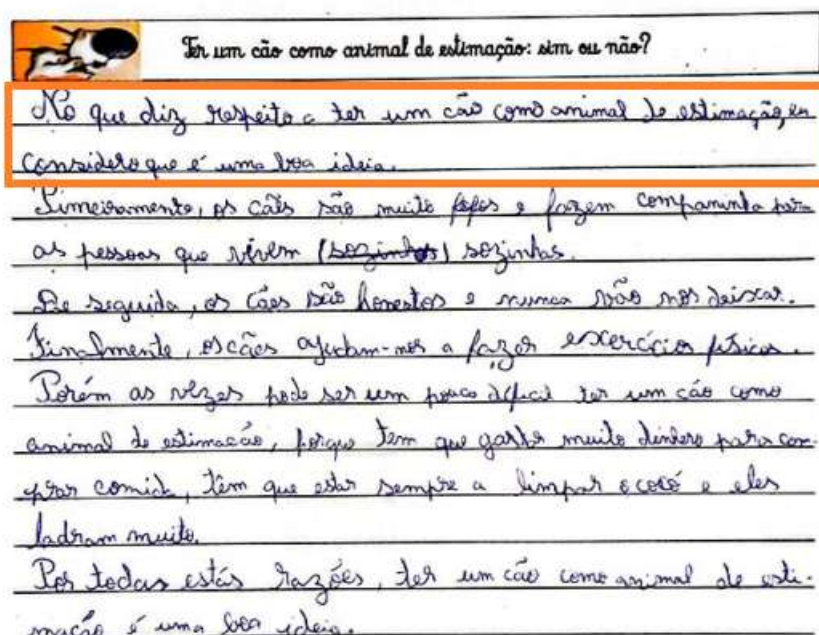 Ter um cão como animal de estimação: sim ou não?
No que diz respeito a ter um cão como animal de estimação, eu
considero que é uma boa ideia.
Pimeiramente, os cães são muito fofos e fazem companinha para
as pessoas que vivem (sozinhos) sozinhas.
De seguida, os cães são honestos e nunca vão nos deixar.
Finalmente, os cães ajudam-nos a fazer exercícios físicos.
Porém as vezes pode ser um pouco dificil ter um cão como
animal de estimacão, porque tem que gastar muito dinhero para com-
prar comida, têm que estar sempre a limpar o cocó e eles
ladram muito.
Por todas estás razões, ter um cão como animal de esti-
mação é uma boa ideia.